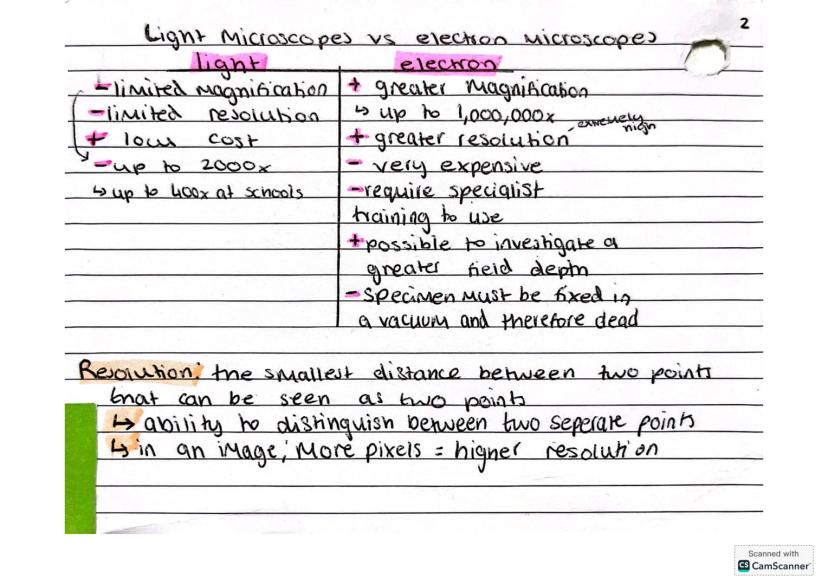 2
Light Microscopes vs electron Microscopes
light
- limited magnification
- limited resolution
+ low cost
- up to 2000x
↳ up to 400x at schools
electron
+ greater Magnification
↳ up to 1,000,000x
+ greater resolution - extremely high
- very expensive
- require specialist
training to use
+ possible to investigate a
greater field depth
- Specimen must be fixed in
a vacuum and therefore dead
Resolution: the smallest distance between two points
that can be seen as two points
↳ ability to distinguish between two seperate points
↳ in an image, More pixels = higher resolution
Scanned with
CS CamScanner